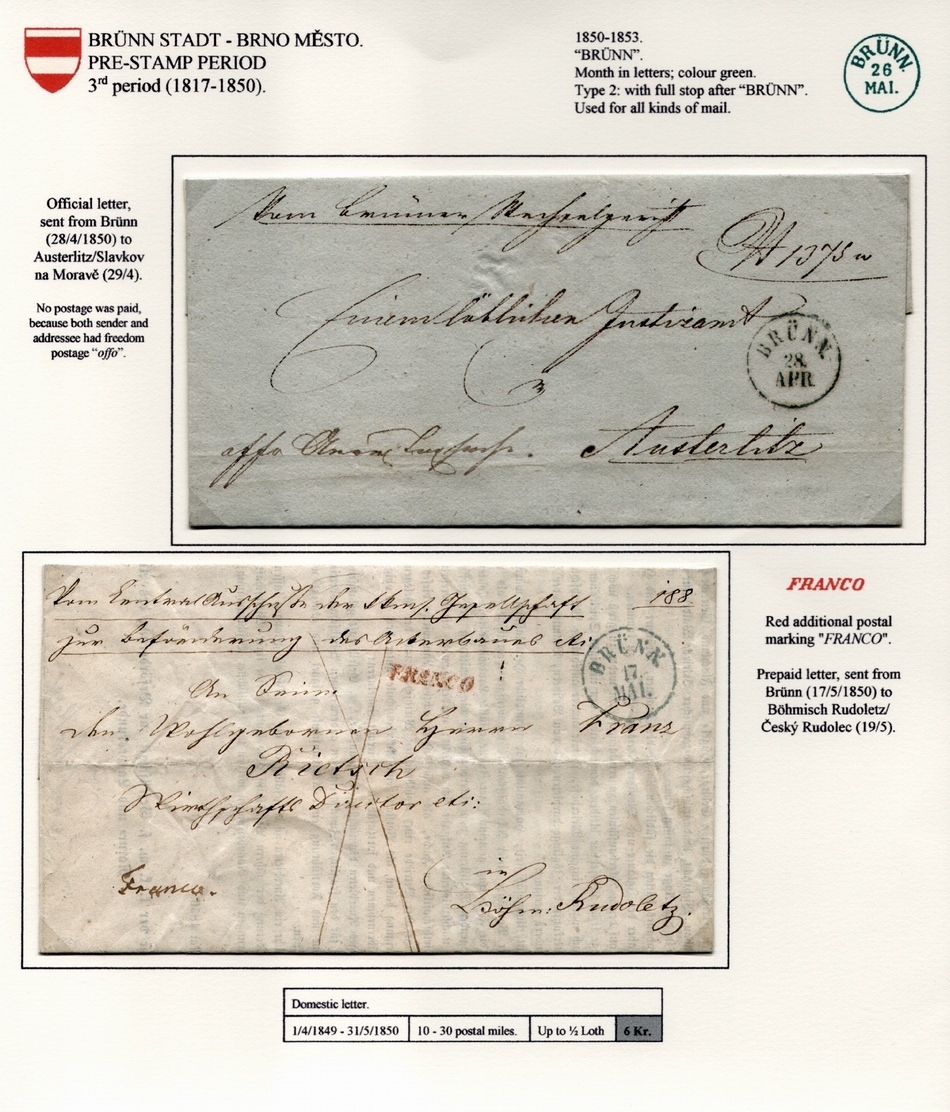 BRÜNN STADT - BRNO MĚSTO.
PRE-STAMP PERIOD
3rd period (1817-1850).
1850-1853.
“BRÜNN”.
Month in letters; colour green.
Type 2: with full stop after “BRÜNN”.
Used for all kinds of mail.
BRÜNN.
26
MAI.
Official letter,
sent from Brünn
(28/4/1850) to
Austerlitz/Slavkov
na Moravě (29/4).
No postage was paid,
because both sender and
addressee had freedom
postage “offo”.
Vom Brünner Wechselgericht
1375
Einem löblichen Justizamt
BRÜNN.
28.
APR.
offo
Austerlitz
Vom Central Ausschuße der Gesellschaft
188
zur Beförderung des Ackerbaues etc
BRÜNN.
17.
MAI.
FRANCO
An Seine
den Wohlgebornen Herrn Franz
Rietsch
Wirthschafts Director etc:
Franco.
in
Böhm: Rudoletz.
FRANCO
Red additional postal
marking "FRANCO".
Prepaid letter, sent from
Brünn (17/5/1850) to
Böhmisch Rudoletz/
Český Rudolec (19/5).
Domestic letter.
1/4/1849 - 31/5/1850 10 - 30 postal miles. Up to ½ Loth 6 Kr.